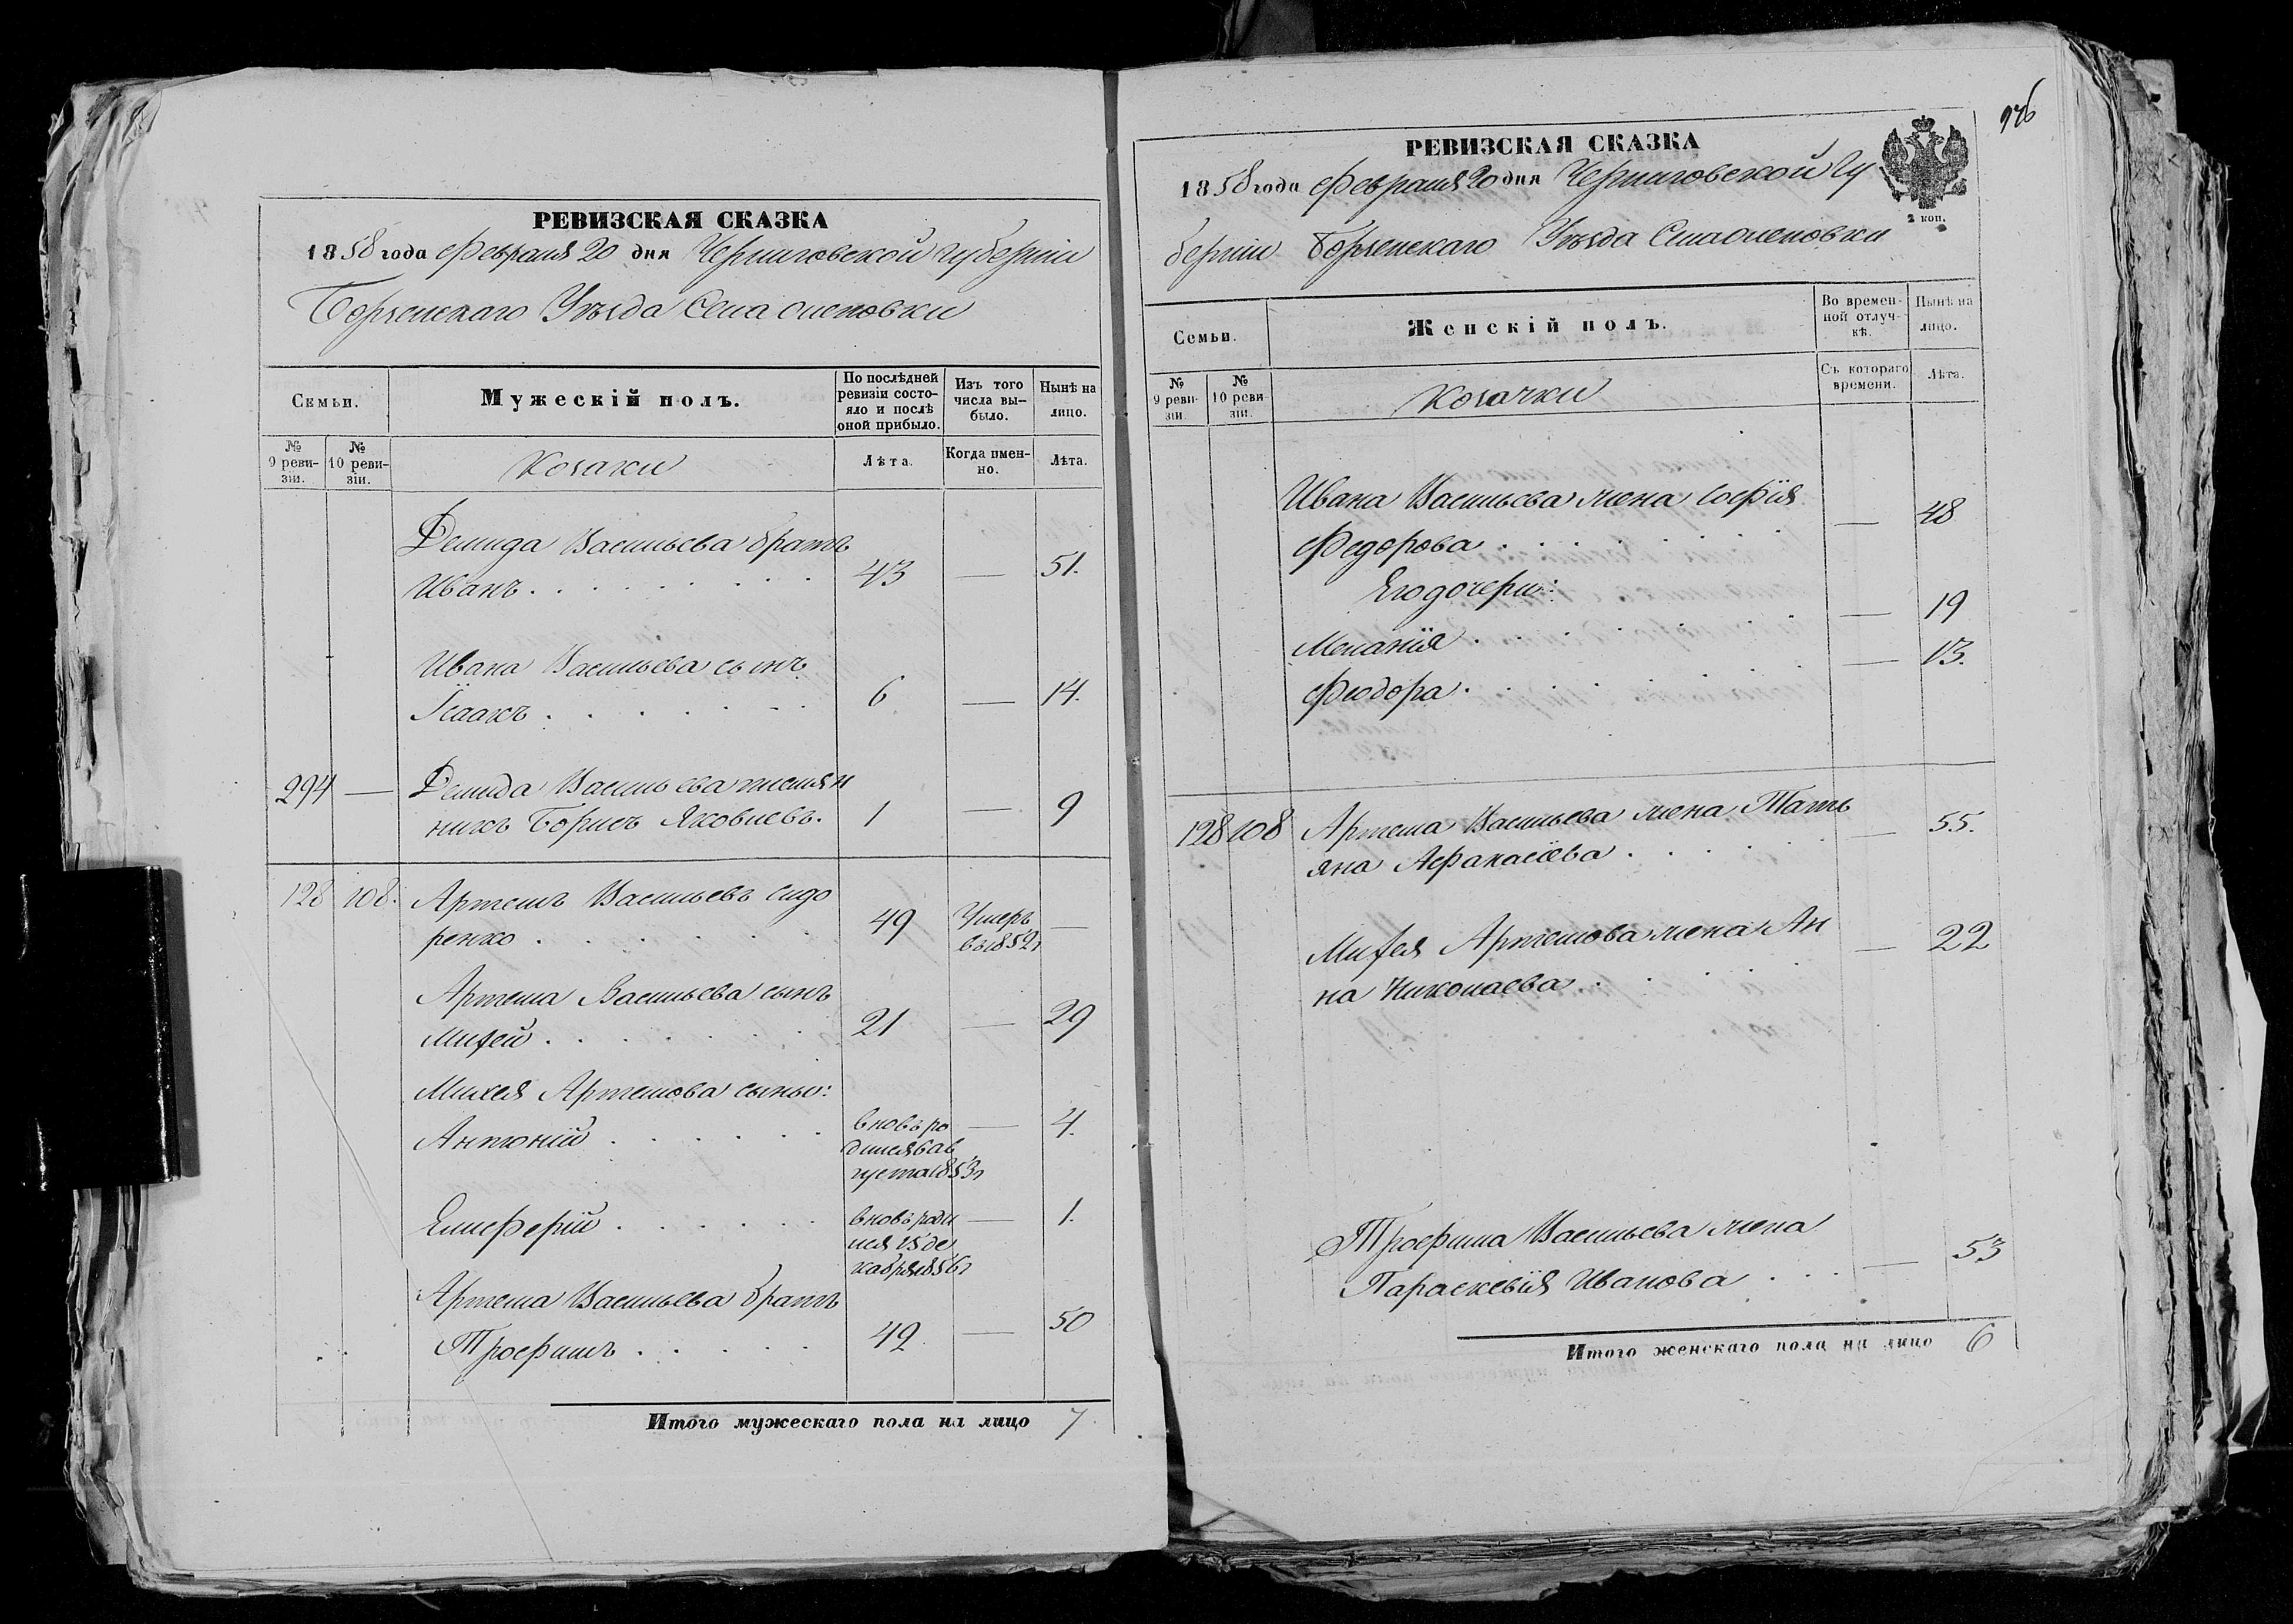 РЕВИЗСКАЯ СКАЗКА
1858 года Февраля 20 дня Черниговской губерніи
Борзенскаго Уѣзда Села Оленовки
Семьи.
Мужескій полъ.
По послѣдней ревизіи состояло и послѣ оной прибыло.
Изъ того числа выбыло.
Нынѣ на лицо.
№ 9 ревизіи.
№ 10 ревизіи.
Козаки
Лѣта.
Когда именно.
Лѣта.
Демида Васильева братъ
Иванъ . . . . . . . . 43 — 51.
Ивана Васильева сынъ
Ісаакъ . . . . . . . 6 — 14.
294 — Демида Васильева племян
никъ Борисъ Яковлевъ. 1 — 9
128 108. Артемъ Васильевъ Сидо
ренко . . . . . . . 49 Умеръ —
въ 1852г
Артема Васильева сынъ
Михей . . . . . . . 21 — 29
Михея Артемова сыны:
Антоній . . . . . . вновь ро — 4.
дился в ав
густа 1853г
Елиферій . . . . . . вновь роди — 1.
лся 15 де
кабря 1856г
Артема Васильева братъ
Трофимъ . . . . . 42 — 50
Итого мужескаго пола на лицо 7.
976
РЕВИЗСКАЯ СКАЗКА
1858 года Февраля 20 дня Черниговской Гу
2 коп.
берніи Борзенскаго Уѣзда Села Оленовки
Семьи.
Женскій полъ.
Во временной отлучкѣ.
Нынѣ на лицо.
№ 9 ревизіи.
№ 10 ревизіи.
Козачки
Съ котораго времени.
Лѣта.
Ивана Васильева жена Софія
Федорова . . . . . . . — 48
Его дочери:
Меланія . . . . . . . — 19
Феодора . . . . . . . — 13.
128 108 Артема Васильева жена Тать
яна Афанасіева . . . . . — 55.
Михея Артемова жена Ан
на Николаева . . . . . — 22
Трофима Васильева жена
Параскевія Иванова . . . — 53
Итого женскаго пола на лицо 6